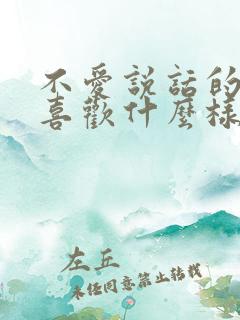 不愛說話的
喜歡什麼樣
左丘
未经同意禁止转载